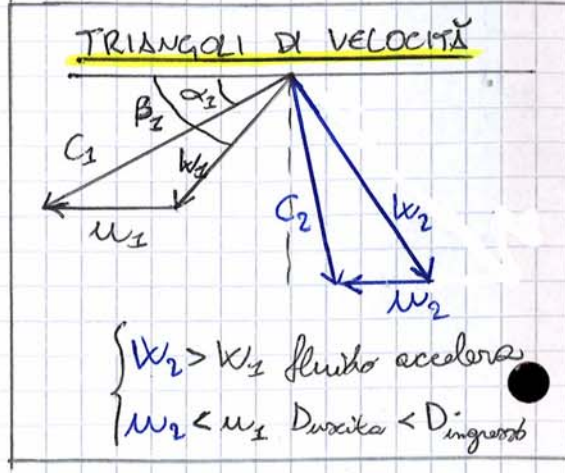 TRIANGOLI DI VELOCITÀ
α1
β1
C1
W1
u1
C2
W2
u2
W2 > W1 fluido accelera
u2 < u1 Duscita < Dingresso